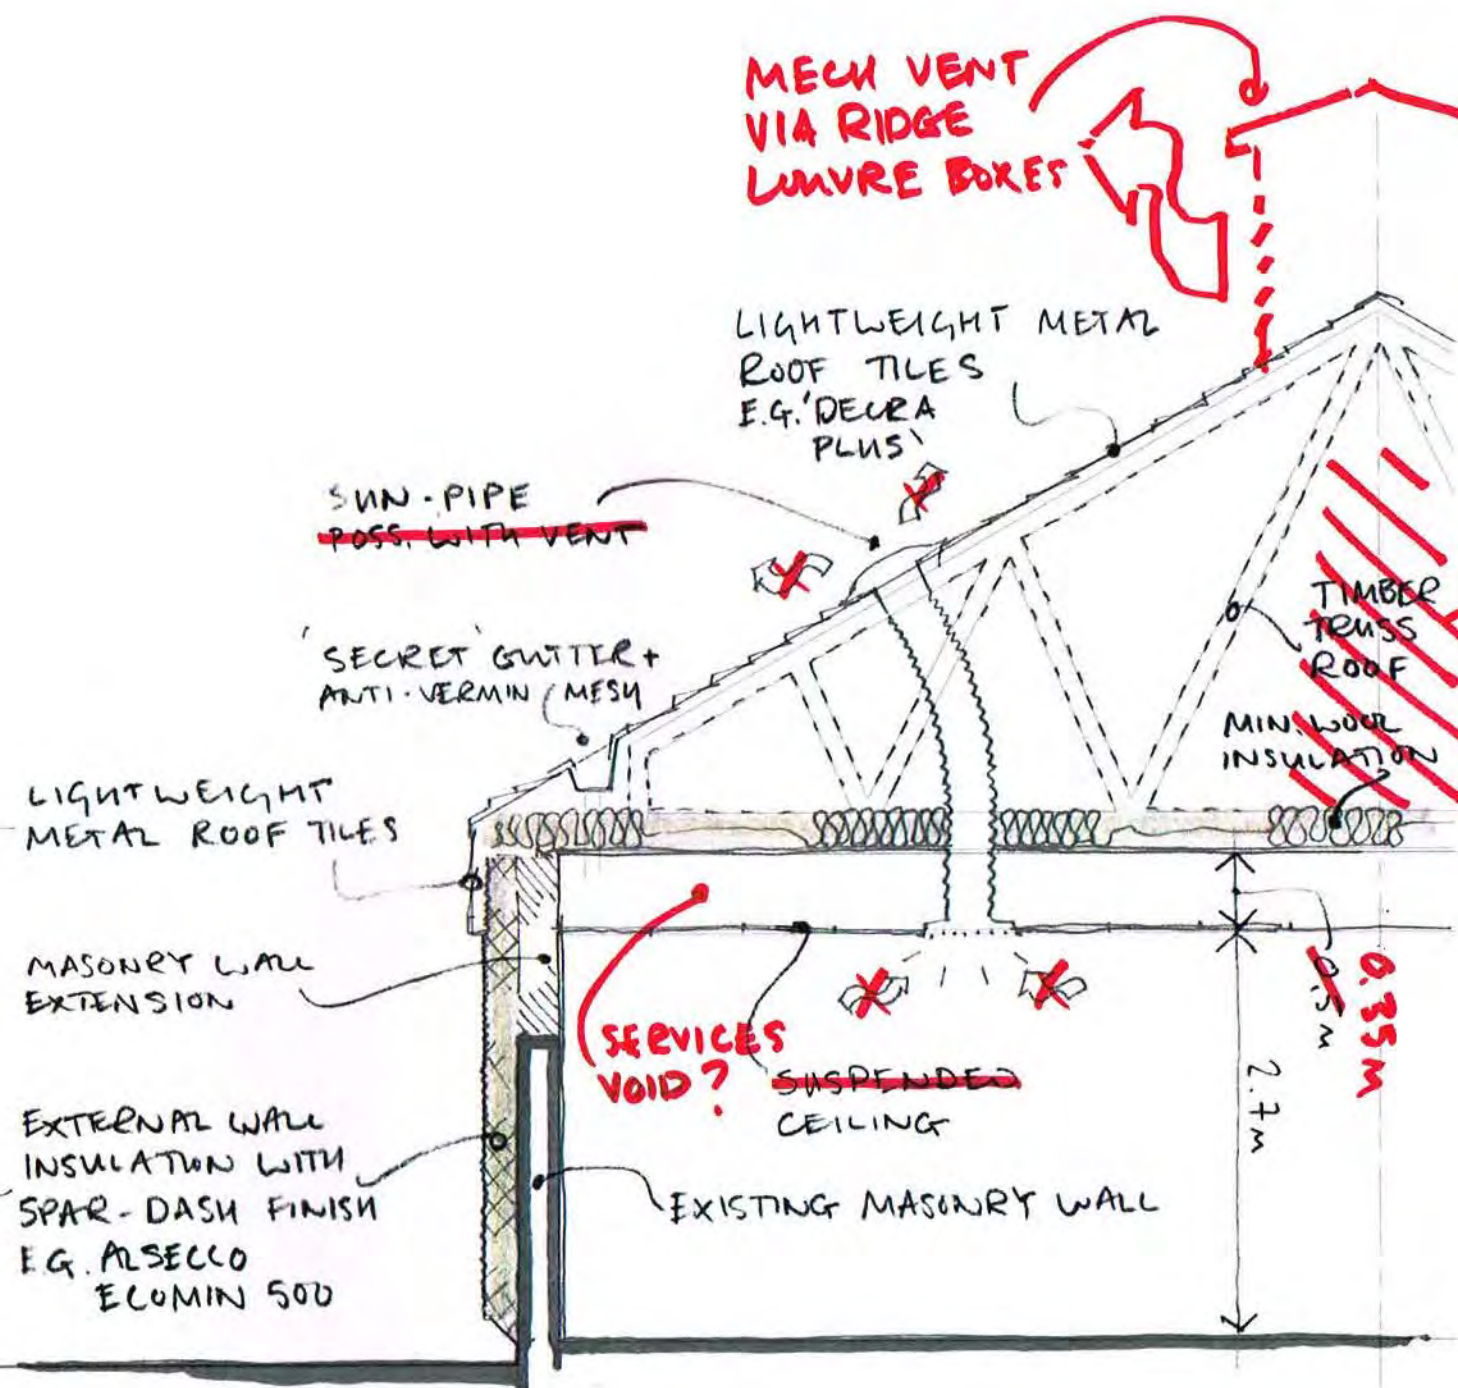 MECH VENT
VIA RIDGE
LOUVRE BOXES
LIGHTWEIGHT METAL
ROOF TILES
E.G. 'DECRA
PLUS'
SUN-PIPE
POSS. WITH VENT
'SECRET' GUTTER +
ANTI-VERMIN MESH
TIMBER
TRUSS
ROOF
MIN. WOOL
INSULATION
LIGHTWEIGHT
METAL ROOF TILES
MASONRY WALL
EXTENSION
SERVICES
VOID?
SUSPENDED
CEILING
0.5m
0.35M
2.7m
EXTERNAL WALL
INSULATION WITH
SPAR-DASH FINISH
E.G. ALSECCO
ECOMIN 500
EXISTING MASONRY WALL